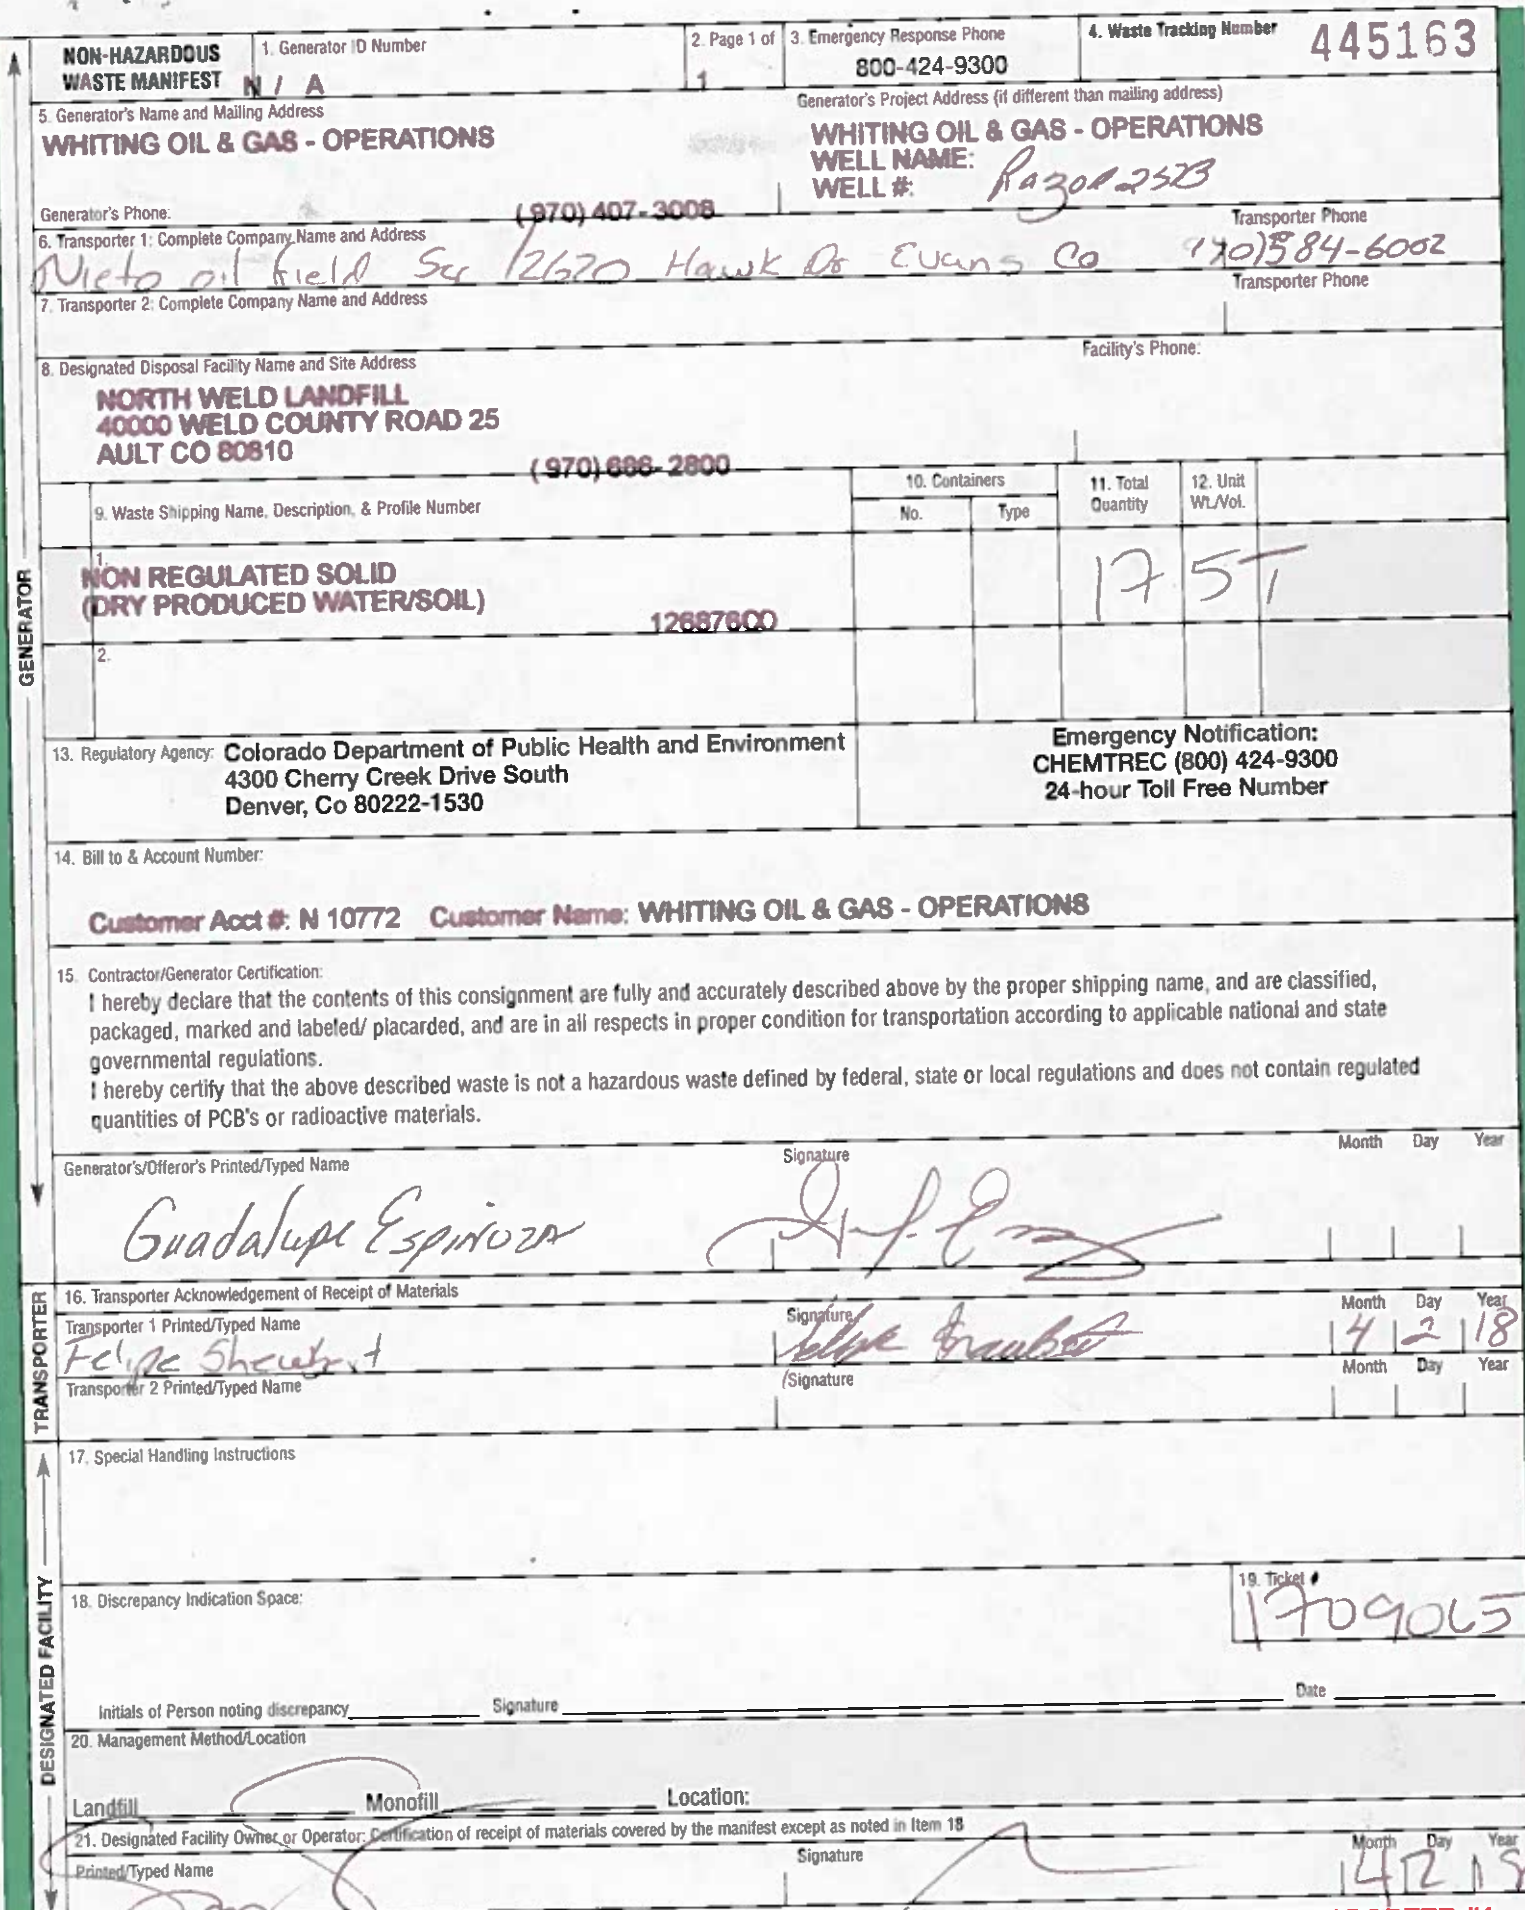 NON-HAZARDOUS
WASTE MANIFEST
1. Generator ID Number
N / A
2. Page 1 of
1
3. Emergency Response Phone
800-424-9300
4. Waste Tracking Number
445163
5. Generator's Name and Mailing Address
WHITING OIL & GAS - OPERATIONS
Generator's Project Address (if different than mailing address)
WHITING OIL & GAS - OPERATIONS
WELL NAME:
WELL #:
Razor 25B
Generator's Phone:
(970) 407-3008
6. Transporter 1: Complete Company Name and Address
Transporter Phone
Nieto oil field Ser 12620 Hawk Dr Evans Co
584-6002
7. Transporter 2: Complete Company Name and Address
Transporter Phone
8. Designated Disposal Facility Name and Site Address
Facility's Phone:
NORTH WELD LANDFILL
40000 WELD COUNTY ROAD 25
AULT CO 80610
(970) 686-2800
9. Waste Shipping Name, Description, & Profile Number
10. Containers
No.
Type
11. Total
Quantity
12. Unit
Wt./Vol.
1.
NON REGULATED SOLID
(DRY PRODUCED WATER/SOIL)
12687600
17.5 T
2.
GENERATOR
13. Regulatory Agency: Colorado Department of Public Health and Environment
4300 Cherry Creek Drive South
Denver, Co 80222-1530
Emergency Notification:
CHEMTREC (800) 424-9300
24-hour Toll Free Number
14. Bill to & Account Number:
Customer Acct #: N 10772 Customer Name: WHITING OIL & GAS - OPERATIONS
15. Contractor/Generator Certification:
I hereby declare that the contents of this consignment are fully and accurately described above by the proper shipping name, and are classified,
packaged, marked and labeled/ placarded, and are in all respects in proper condition for transportation according to applicable national and state
governmental regulations.
I hereby certify that the above described waste is not a hazardous waste defined by federal, state or local regulations and does not contain regulated
quantities of PCB's or radioactive materials.
Generator's/Offeror's Printed/Typed Name
Signature
Month Day Year
Guadalupe Espinoza
TRANSPORTER
16. Transporter Acknowledgement of Receipt of Materials
Transporter 1 Printed/Typed Name
Signature
Month Day Year
Felipe
4 2 18
Transporter 2 Printed/Typed Name
Signature
Month Day Year
17. Special Handling Instructions
DESIGNATED FACILITY
18. Discrepancy Indication Space:
19. Ticket #
1709065
Initials of Person noting discrepancy
Signature
Date
20. Management Method/Location
Landfill
Monofill
Location:
21. Designated Facility Owner or Operator: Certification of receipt of materials covered by the manifest except as noted in Item 18
Printed/Typed Name
Signature
Month Day Year
4 2